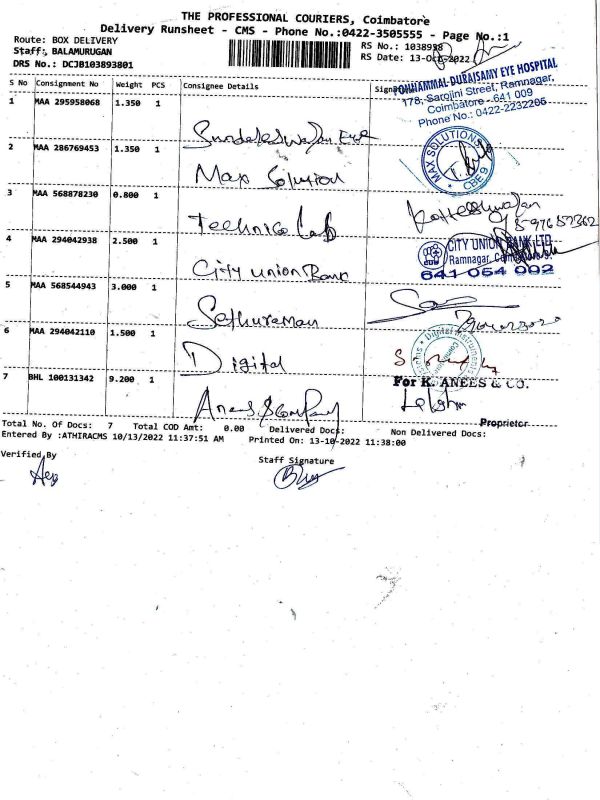 THE PROFESSIONAL COURIERS, Coimbatore
Delivery Runsheet - CMS - Phone No.:0422-3505555 - Page No.:1
Route: BOX DELIVERY
Staff: BALAMURUGAN
DRS No.: DCJB103893801
RS No.: 1038938
RS Date: 13-Oct-2022
S No Consignment No Weight PCS Consignee Details
1 MAA 295958068 1.350 1
PONHAMMAL DURAISAMY EYE HOSPITAL
178, Sarojini Street, Ramnagar,
Coimbatore - 641 009
Phone No.: 0422-2232265
2 MAA 286769453 1.350 1 Max Solution
MAX SOLUTIONS
CBE 9
3 MAA 568878230 0.800 1 Technico Lab
4 MAA 294042938 2.500 1 City Union Bank
CITY UNION BANK LTD
Ramnagar, Coimbatore-9.
641 054 002
5 MAA 568544943 3.000 1 Sethuraman
6 MAA 294042110 1.500 1 Digital
7 BHL 100131342 9.200 1
For K. ANEES & CO.
Proprietor
Total No. Of Docs: 7 Total COD Amt: 0.00 Delivered Docs: Non Delivered Docs:
Entered By :ATHIRACMS 10/13/2022 11:37:51 AM Printed On: 13-10-2022 11:38:00
Verified By
Staff Signature